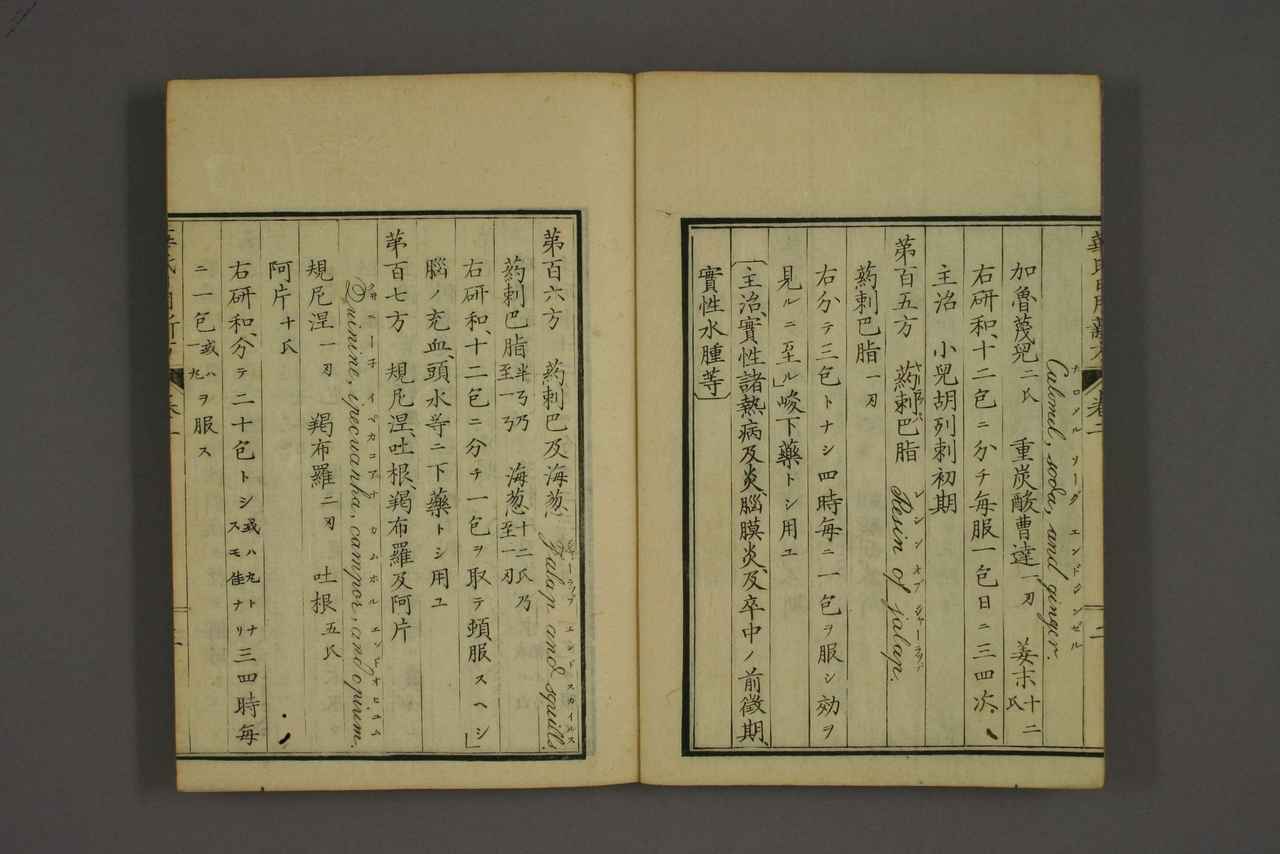 カロメル ソーダ エンド ジンゼル
Calomel, soda, and ginger.
加魯蔑兒二氏 重炭酸曹達一刃 姜末十二氏
右研和、十二包ニ分チ毎服一包日ニ三四次、
主治 小兒胡列刺初期
第百五方 葯刺巴脂 Resin of jalap.
葯刺巴脂一刃
右分テ三包トナシ四時毎ニ一包ヲ服シ効ヲ
見ルニ至ル」峻下藥トシ用ユ
主治、實性諸熱病及炎、腦膜炎、及卒中ノ前徴期、
實性水腫等
第百六方 葯刺巴及海葱 Jalap and squills.
葯刺巴脂半丂乃至一丂 海葱十二氏乃至一刃
右研和、十二包ニ分チ一包ヲ取テ頓服スヘシ」
腦ノ充血、頭水等ニ下藥トシ用ユ
第百七方 規尼涅、吐根、羯布羅及阿片
Quinine, ipecuanha, campor, and opirem.
規尼涅一刃 羯布羅二刃 吐根五氏
阿片十氏
右研和、分テ二十包トシ或ハ丸トナスモ佳ナリ三四時毎
ニ一包或ハ一丸ヲ服ス